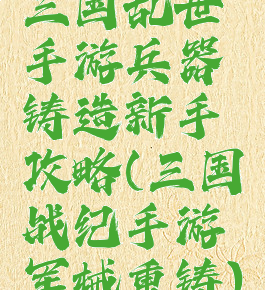 三国乱世
手游兵器
铸造新手
攻略(三国
战纪手游
军械重铸)